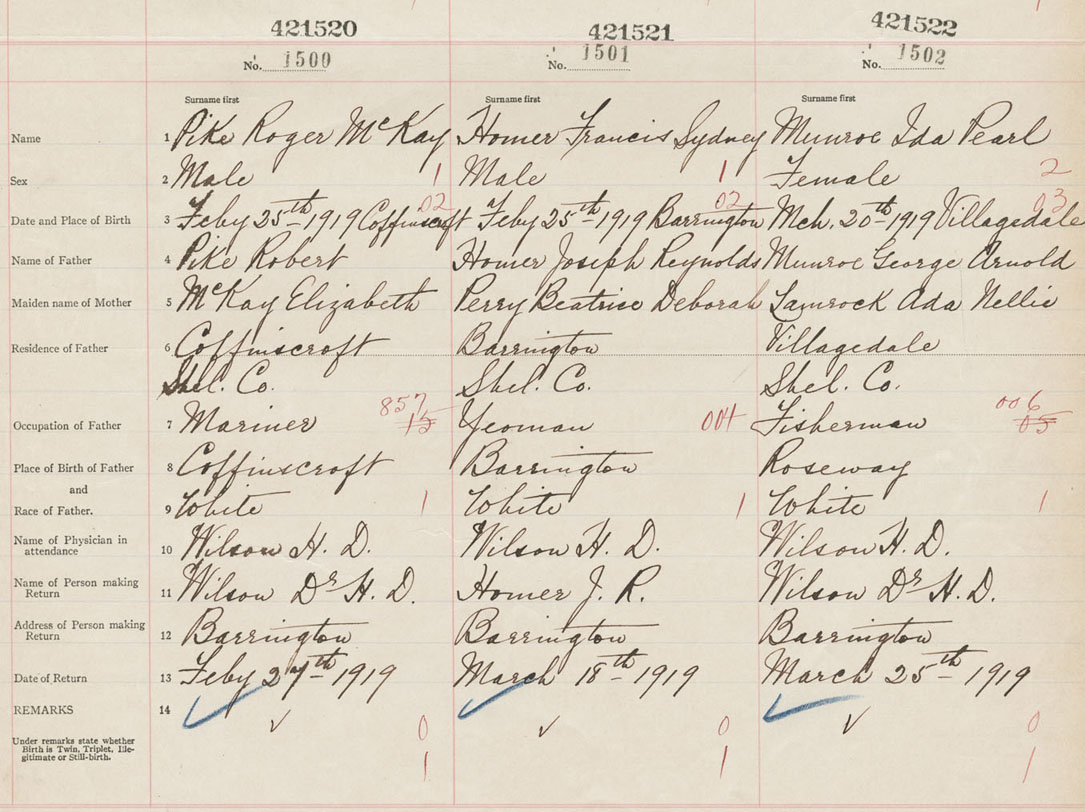 421520 421521 421522
No. 1500 No. 1501 No. 1502
Surname first Surname first Surname first
Name 1 Pike Roger McKay Homer Francis Sydney Munroe Ida Pearl
Sex 2 Male 1 Male 1 Female 2
02 02 03
Date and Place of Birth 3 Feby 25th 1919 Coffinscroft Feby 25th 1919 Barrington Mch. 20th 1919 Villagedale
Name of Father 4 Pike Robert Homer Joseph Reynolds Munroe George Arnold
Maiden name of Mother 5 McKay Elizabeth Perry Beatrice Deborah Lamrock Ada Nellie
Residence of Father 6 Coffinscroft Barrington Villagedale
Shel. Co. Shel. Co. Shel. Co.
857 006
Occupation of Father 7 Mariner 15 Yeoman 004 Fisherman 05
Place of Birth of Father 8 Coffinscroft Barrington Roseway
and
Race of Father. 9 White 1 White 1 White 1
Name of Physician in
attendance 10 Wilson H. D. Wilson H. D. Wilson H. D.
Name of Person making
Return 11 Wilson Dr H. D. Homer J. R. Wilson Dr H. D.
Address of Person making
Return 12 Barrington Barrington Barrington
Date of Return 13 Feby 27th 1919 March 18th 1919 March 25th 1919
REMARKS 14
0 0 0
Under remarks state whether
Birth is Twin, Triplet, Ille-
gitimate or Still-birth.
1 1 1